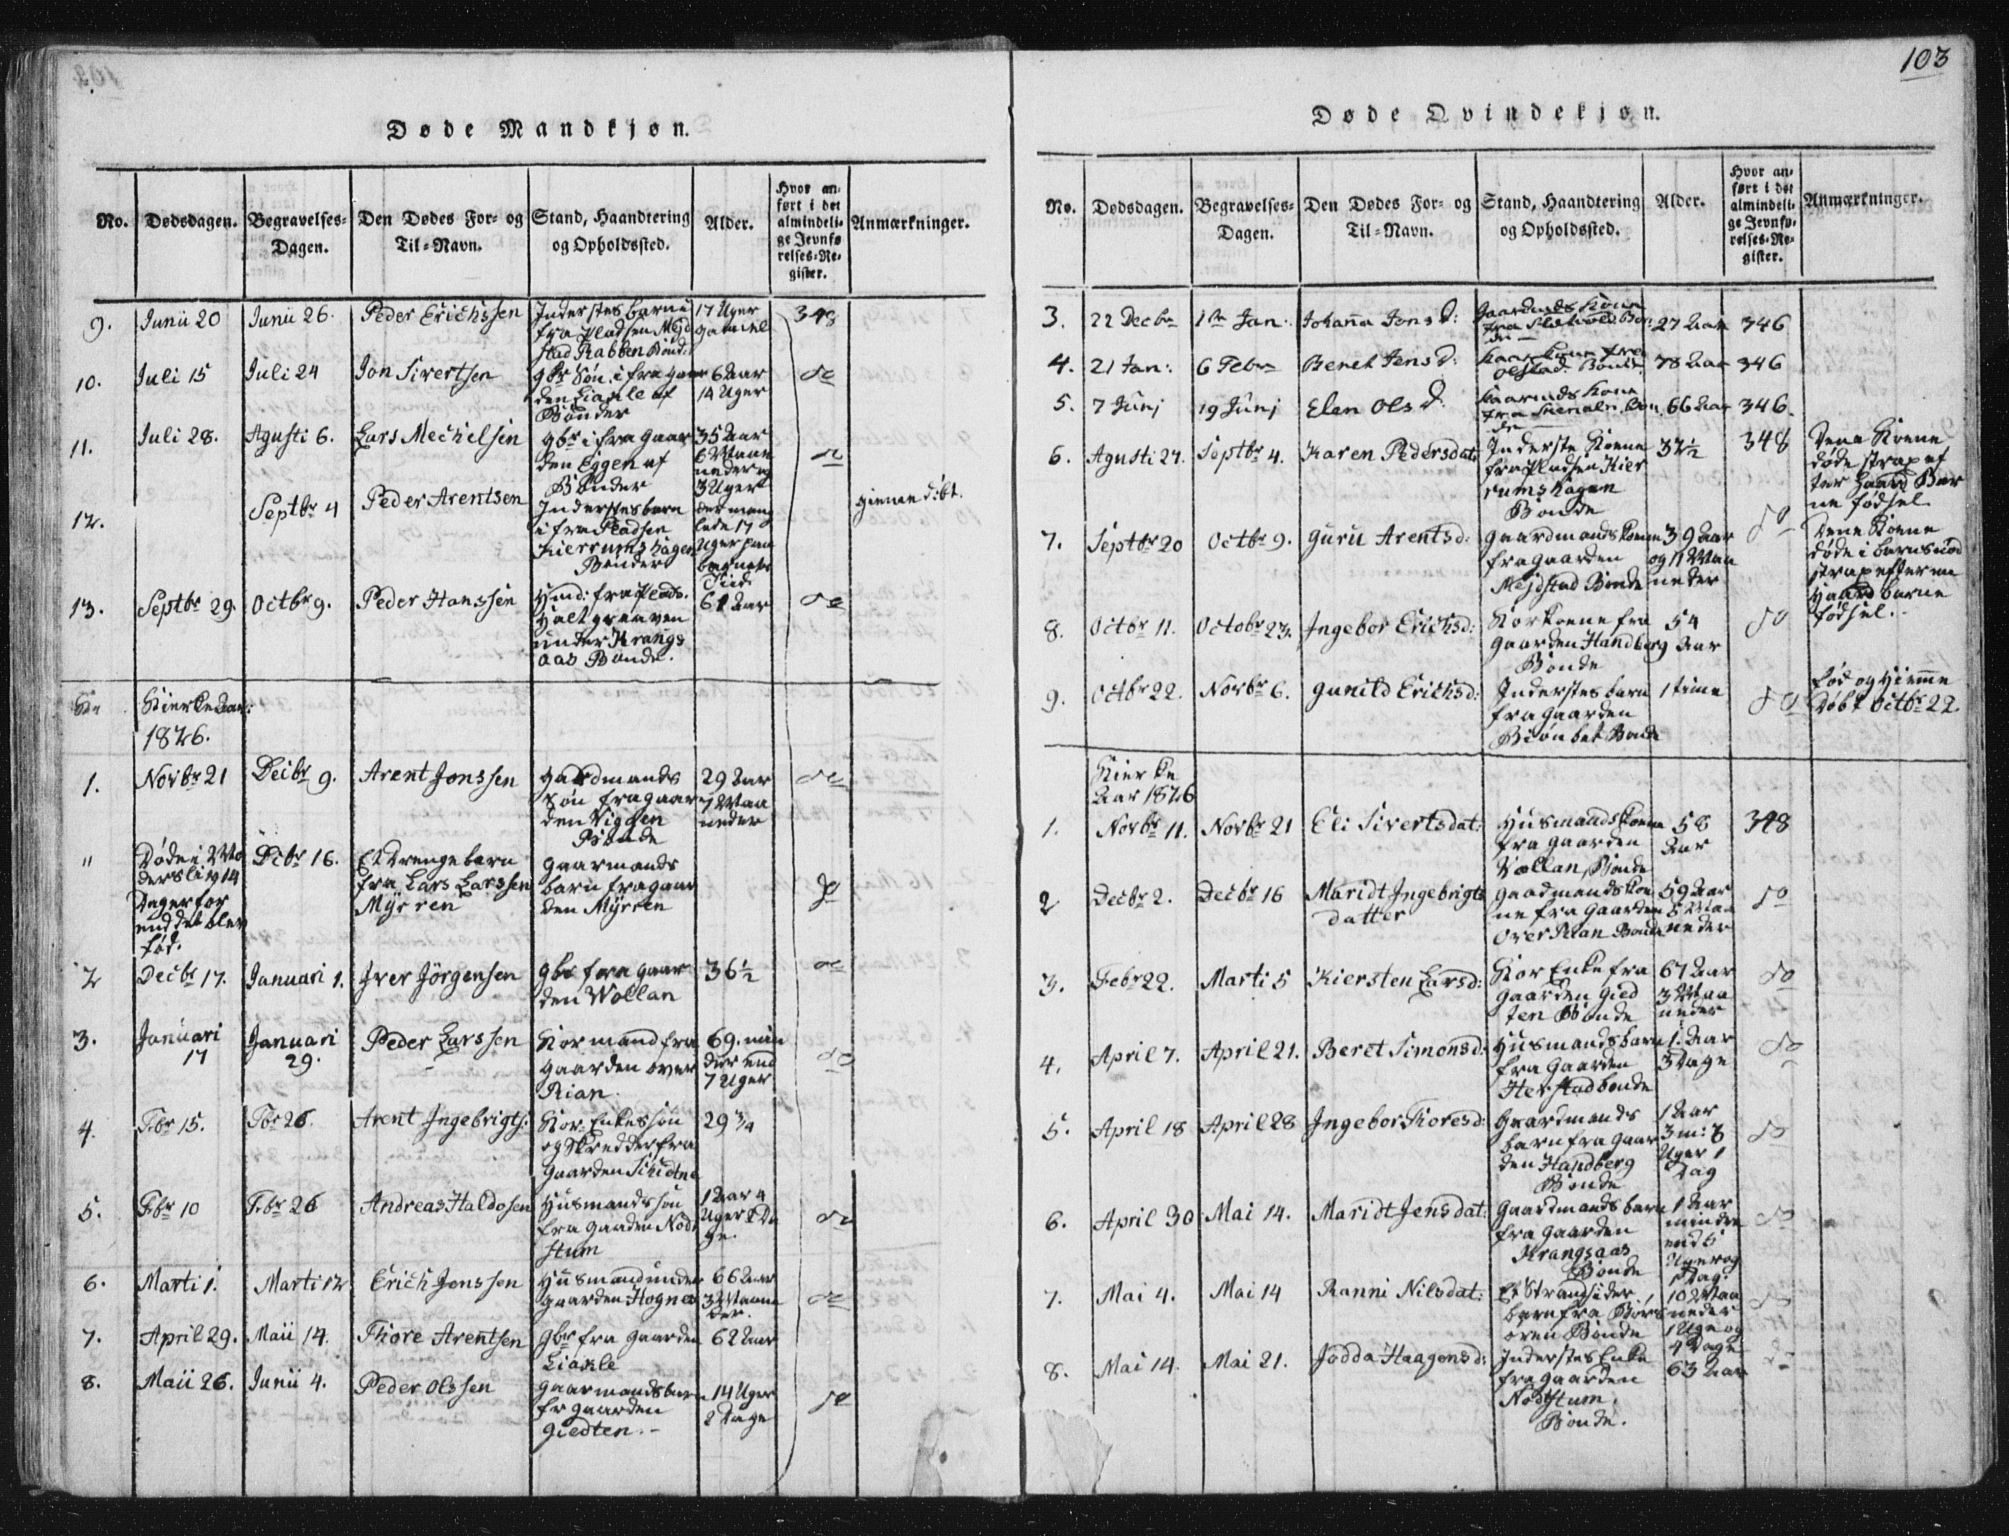 103
Døde Mandkjøn.
No.
Dødsdagen.
Begravelses-
Dagen.
Den Dødes For- og
Til-Navn.
Stand, Haandtering
og Opholdssted.
Alder.
Hvor an-
ført i det
almindeli-
ge Jevnfø
relses-Re-
gister.
Anmærkninger.
9. Junii 20 Junii 26. Peder Erichssen
Inderstes barn
fra Pladsen
17 Uger
gamel
348
10. Juli 15 Juli 24 Jon Sivertsen
gbr Søn ifra gaar
den Liakle af
Bønder
6 Aar
14 Uger
do
11. Juli 28. Agusti 6. Lars Mechelsen
gbr ifra gaar
den Eggen af
Bønder
35 Aar
do
12. Septbr 4 Peder Arentsen
Inderstesbarn
ifra Pladsen
Kierrumshagen
Bønder
3 Uger
hieme døbt.
13. Septbr 29. Octbr 9. Peder Hanssen
Hmd: fra Plads.
under Krangs
aas Bonde.
61 Aar
do
Kierke Aar:
1826.
1. Novbr 21 Decbr 9. Arent Jonssen
gardmands
Søn fra gaar
den Viggen
Bonde
29 Aar
7 Maa
neder
do
" Døde i Mo
ders liv 14
Dager for
end det blev
fød.
Decbr 16.
Et Drengebarn
fra Lars Larssen
Myrren
gaarmands
barn fra gaar
den Myrren
do
2 Decbr 17. Januari 1. Iver Jörgensen
gbr fra gaar
den Wollan
36½
do
3. Januari
17
Januari
29.
Peder Larssen
Kormand fra
gaarden over
Rian
69. min
dre end
7 Uger
do
4. Fbr 15. Fbr 26. Arent Ingebrigts:
Kor Enkes søn
og Skredder fra
gaarden
29 ¾
5. Fbr 10 Fbr 26 Andreas Haldosen
Husmands søn
fra gaarden Nød
stum
1 Aar 4
Uger 2 Da
ge.
do
6. Marti 1. Marti 12 Erich Jonssen
Husmand under
gaarden Hognes
66 Aar
3 Maane
der.
do
7. April 29. Maii 14. Thore Arentsen
gbr fra gaarden
Liakle
62 Aar
8. Maii 26. Junii 4. Peder Olssen
gaarmands barn
fr gaarden
Giedten.
14 Uger
2 Dage
do
Døde Qvindekjøn.
No.
Dødsdagen.
Begravelses-
Dagen.
Den Dødes For- og
Til-Navn.
Stand, Haandtering
og Opholdssted.
Alder.
Hvor an-
ført i det
almindeli-
ge Jevnfø-
relses-Re-
gister.
Anmærkninger.
3. 22 Decbr 1te Jan: Johana Jons D:
Gaardmds Kone
27 Aar 346
4. 21 Jan: 6 Febr Beret Jens D:
Bonde
78 Aar 346
5. 7 Junj 19 Junj Elen Ols D.
Gaarmds Kone
66 Aar 346.
6. Agusti 27. Septbr 4. Karen Pedersdat:
Inderste Koene
fra Pladsen Kier
rumshagen
Bonde
37½
348
Dene Koene
døde strax ef
ter haard Bar
ne fødsel
7. Septbr 20 Octbr 9. Guru Arentsd:
gaardmandskoene
fra gaarden
Mejstad Bonde
39 Aar
og 11 Maa
neder
do
Dene Koene
døde i barnsnød
strax efter en
haard barne
fødsel.
8. Octbr 11. Octobr 23. Ingebor Erichsd:
Korkoene fra
gaarden Handberg
Bonde
54
Aar
do
9. Octbr 22. Novbr 6. Gunild Erichsd:
Inderstes barn
fra gaarden
Biønbet Bonde
1 time
do
Fød og Hieme
Døbt Octbr 22.
Kierke
Aar 1826
1. Novbr 11. Novbr 21 Eli Sivertsdat:
Husmands Koene
fra gaarden
Vollan, Bonde
58
Aar
348
2 Decbr 2. Decbr 16 Maridt Ingebrigts
datter
gaadmands koe
ne fra gaarden
Over Rian Bonde
59 Aar
5 Maa
neder
do
3. Febr 22. Marti 5 Kiersten Larsd:
Kor Enke fra
gaarden Gied
ten Bonde
67 Aar
3 Maa
neder
do
4. April 7. April 21. Beret Simonsd:
Husmands barn
fra gaarden
Herstad bonde
1. Aar
3 Dage
do
5. April 18 April 28 Ingebor Thoresd:
Gaardmands
barn fra gaar
den Handberg
Bonde
1 Aar
3 m: 3
Uger 1
Dag
do
6. April 30 Mai 14. Maridt Jensdat:
Gaardmands barn
fra gaarden
Krangsaas
Bonde
1 Aar
mindre
end 6
Uger og
1 Dag.
do
7. Mai 4. Mai 14 Ranni Nilsdat:
Et Strandsider
barn fra Børs
øren Bonde
10 Maa
neder
1 Uge og
4 Dage
do
8. Mai 14. Mai 21. Jødda Haagensd:
Inderstes Enke
fra gaarden
Nødstum.
Bonde.
63 Aar
do